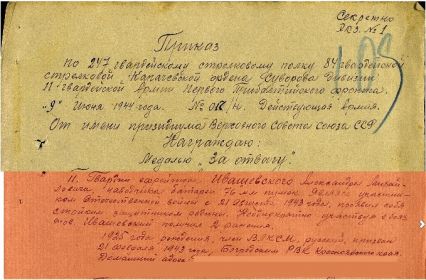 Секретно
экз. № 1
Приказ
по 247 гвардейскому стрелковому полку 84 гвардейской
стрелковой Карачевской ордена Суворова дивизии
11 гвардейской армии Первого Прибалтийского фронта.
"9" Июня 1944 года. № /н. Действующая армия.
От имени президиума Верховного Совета Союза ССР
Награждаю:
Медалью "За отвагу".
11. Гвардии ефрейтора Ивашевского Александра Михай-
ловича наводчика батареи 76 мм пушек
участни-
ком отечественной войны с 21 августа 1943 года, показал себя
стойким защитником родины. Неоднократно участвуя в боях
Ивашевский получил 2 ранения.
1925 года рождения, член ВЛКСМ, русский, призван
21 февраля 1943 года, РВК
Домашний адрес: